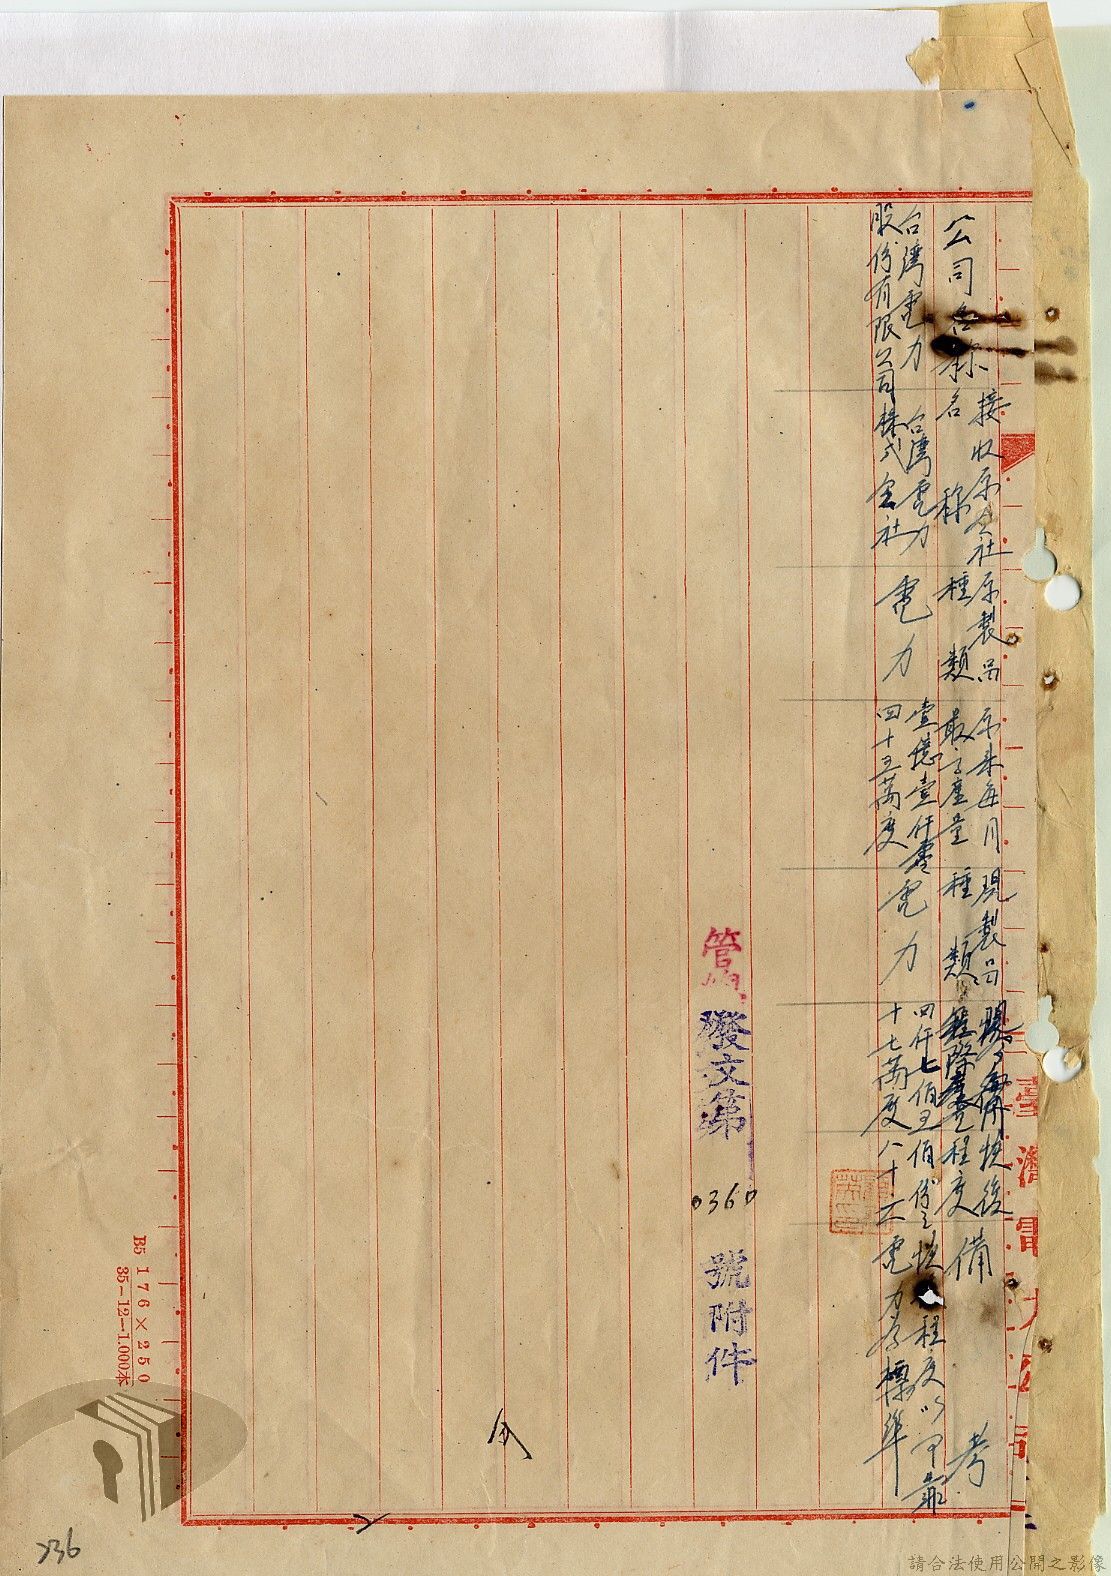 公司名称
接收原会社
名称
原製品
種類
原来每月
最高產量
現製品
種類
恢復
程度
備考
台灣電力
股份有限公司
台灣電力
株式会社
電力
壹億壹仟零
四十五萬度
電力
四仟七佰五
十七萬度
佰份之
八十五
恢 程度以可靠
電力為標準
管
發文第 0360 號附件
臺灣電力公司
B5 176×250
35-12-1.000本
236
請合法使用公開之影像